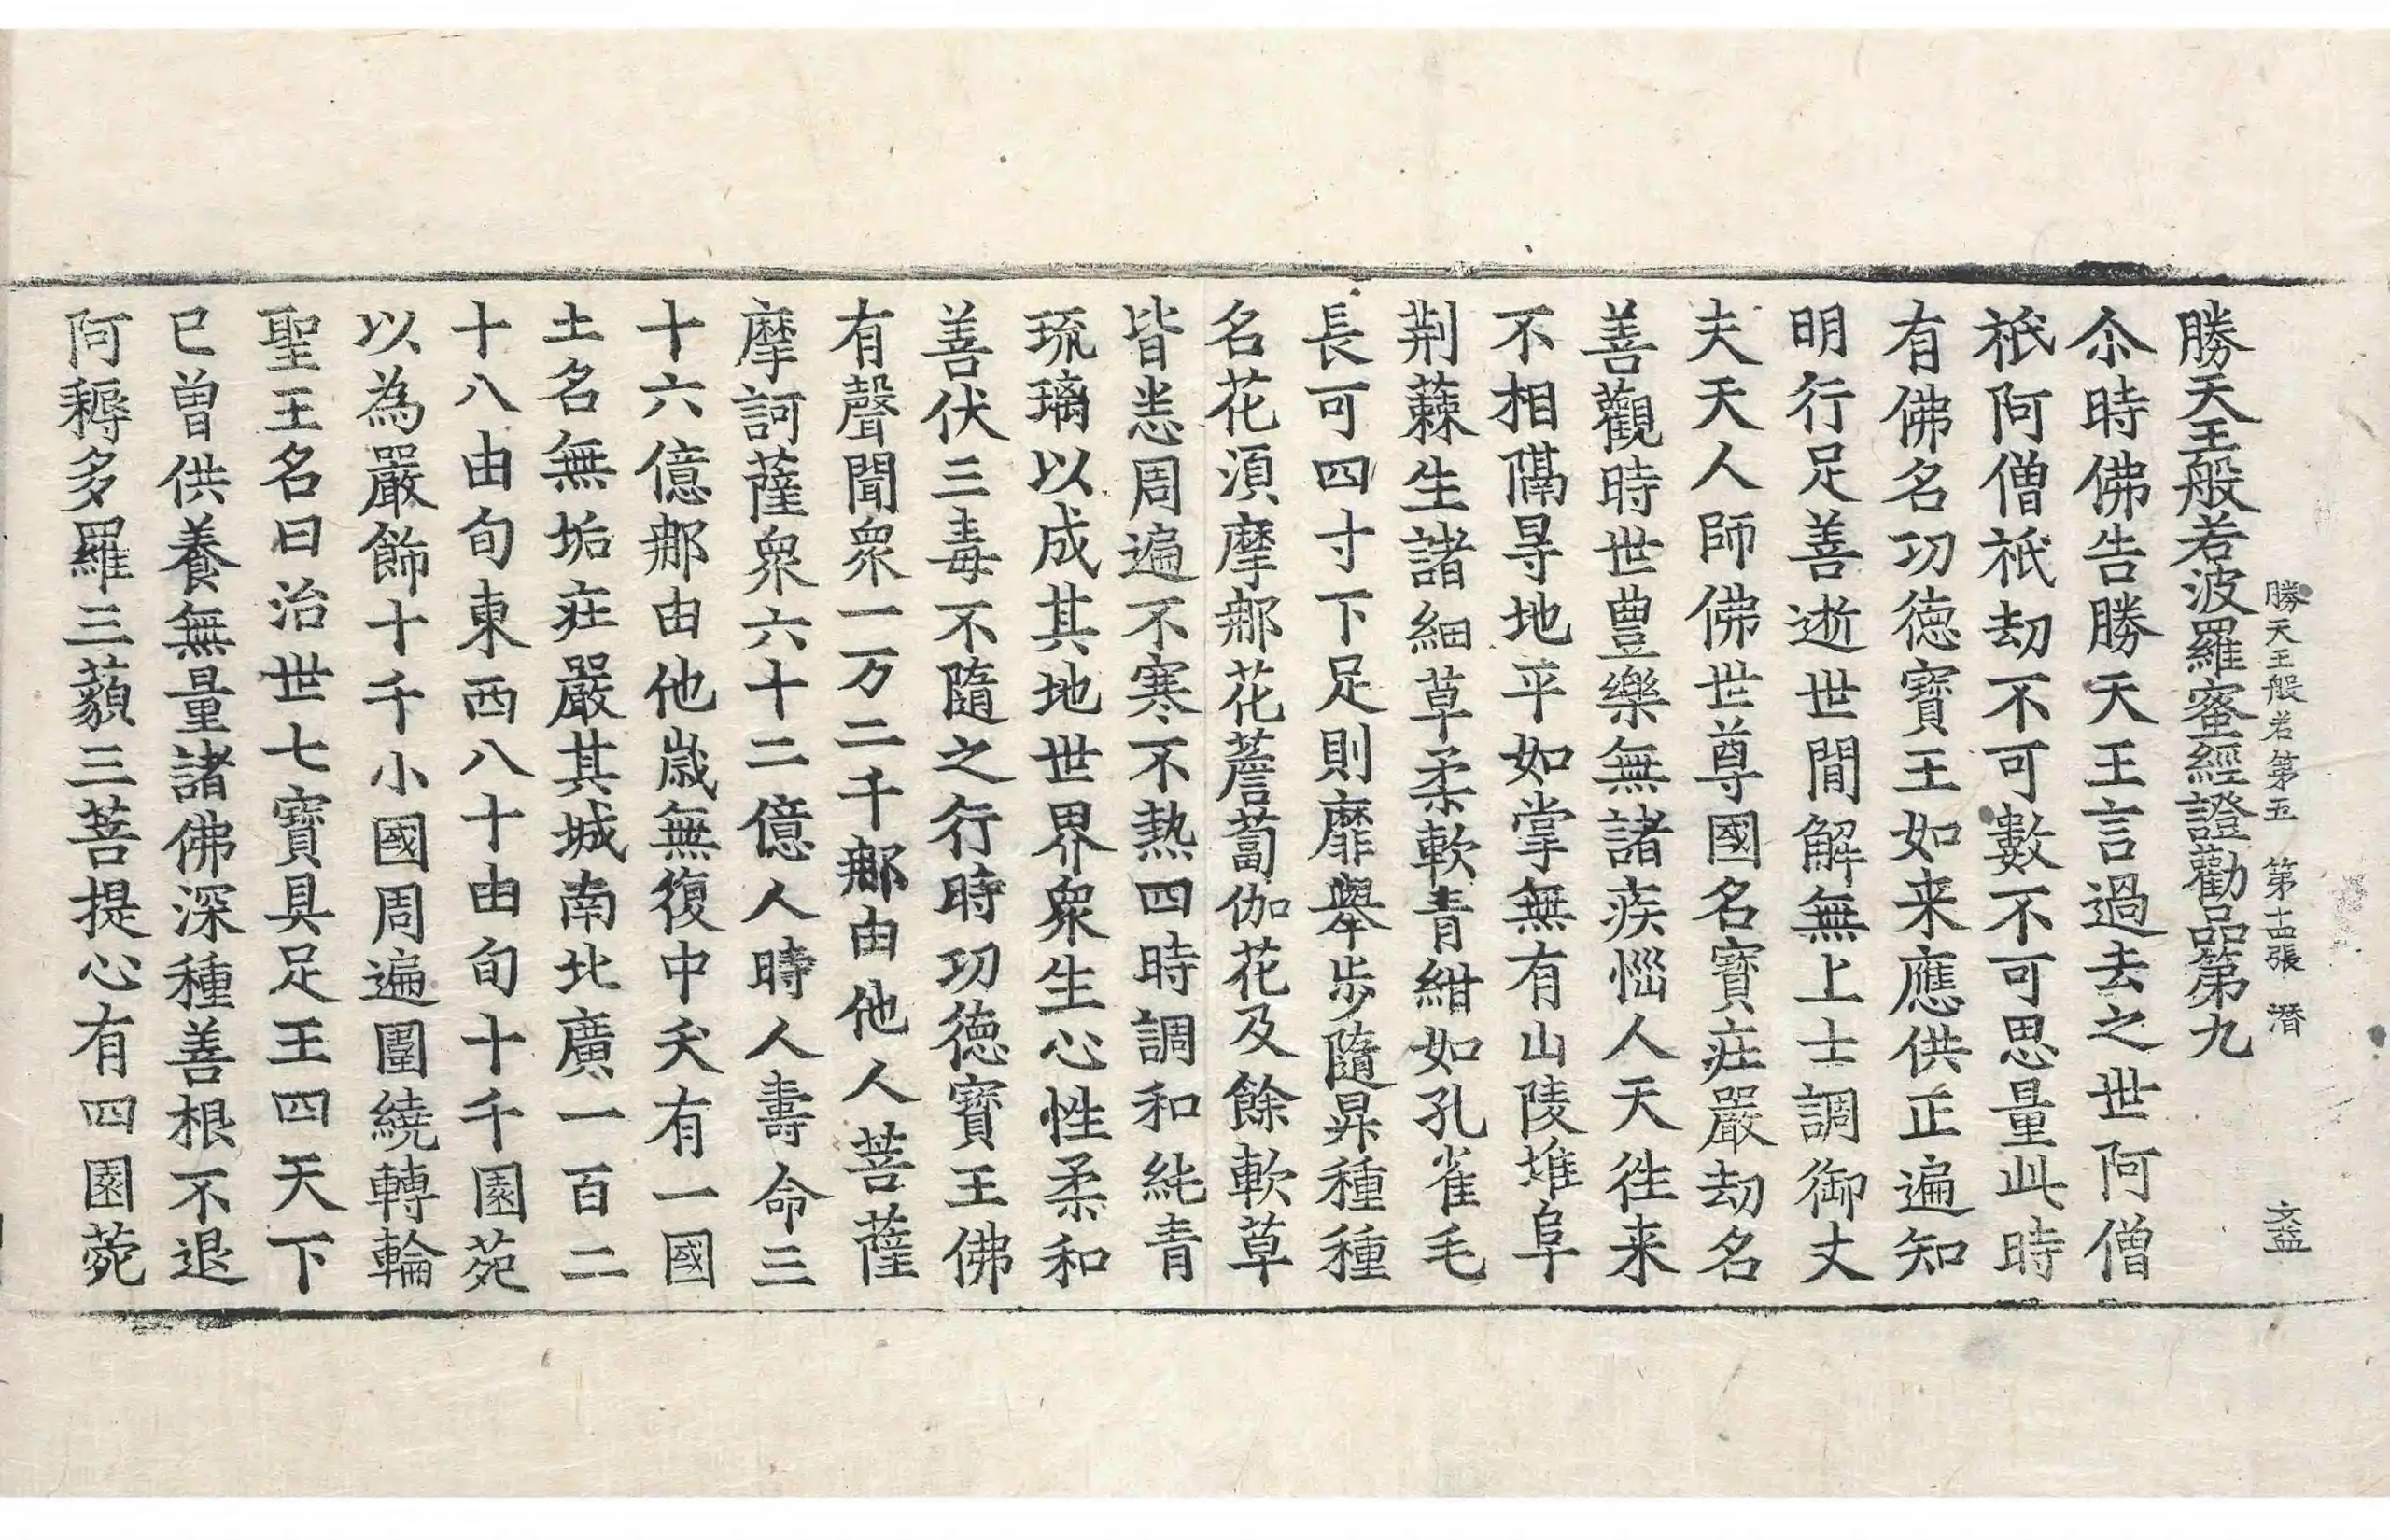 勝天王般若第五　第十四張　潛　文益
勝天王般若波羅蜜經證勸品第九
尒時佛告勝天王言過去之世阿僧
祇阿僧祇劫不可數不可思量此時
有佛名功德寶王如来應供正遍知
明行足善逝世閒解無上士調御丈
夫天人師佛世尊國名寶莊嚴劫名
善觀時世豊樂無諸疾惱人天往来
不相隔㝵地平如掌無有山陵堆阜
荆蕀生諸細草柔軟青紺如孔雀毛
長可四寸下足則靡舉步隨昇種種
名花湏摩那花薝蔔伽花及餘軟草
皆悉周遍不寒不熱四時調和純青
琉璃以成其地世界衆生心性柔和
善伏三毒不隨之行時功德寶王佛
有聲聞衆一万二千那由他人菩薩
摩訶薩衆六十二億人時人壽命三
十六億那由他歲無復中夭有一國
土名無垢莊嚴其城南北廣一百二
十八由旬東西八十由旬十千園苑
以為嚴飾十千小國周遍圍繞轉輪
聖王名曰治世七寶具足王四天下
已曾供養無量諸佛深種善根不退
阿耨多羅三藐三菩提心有四園菀